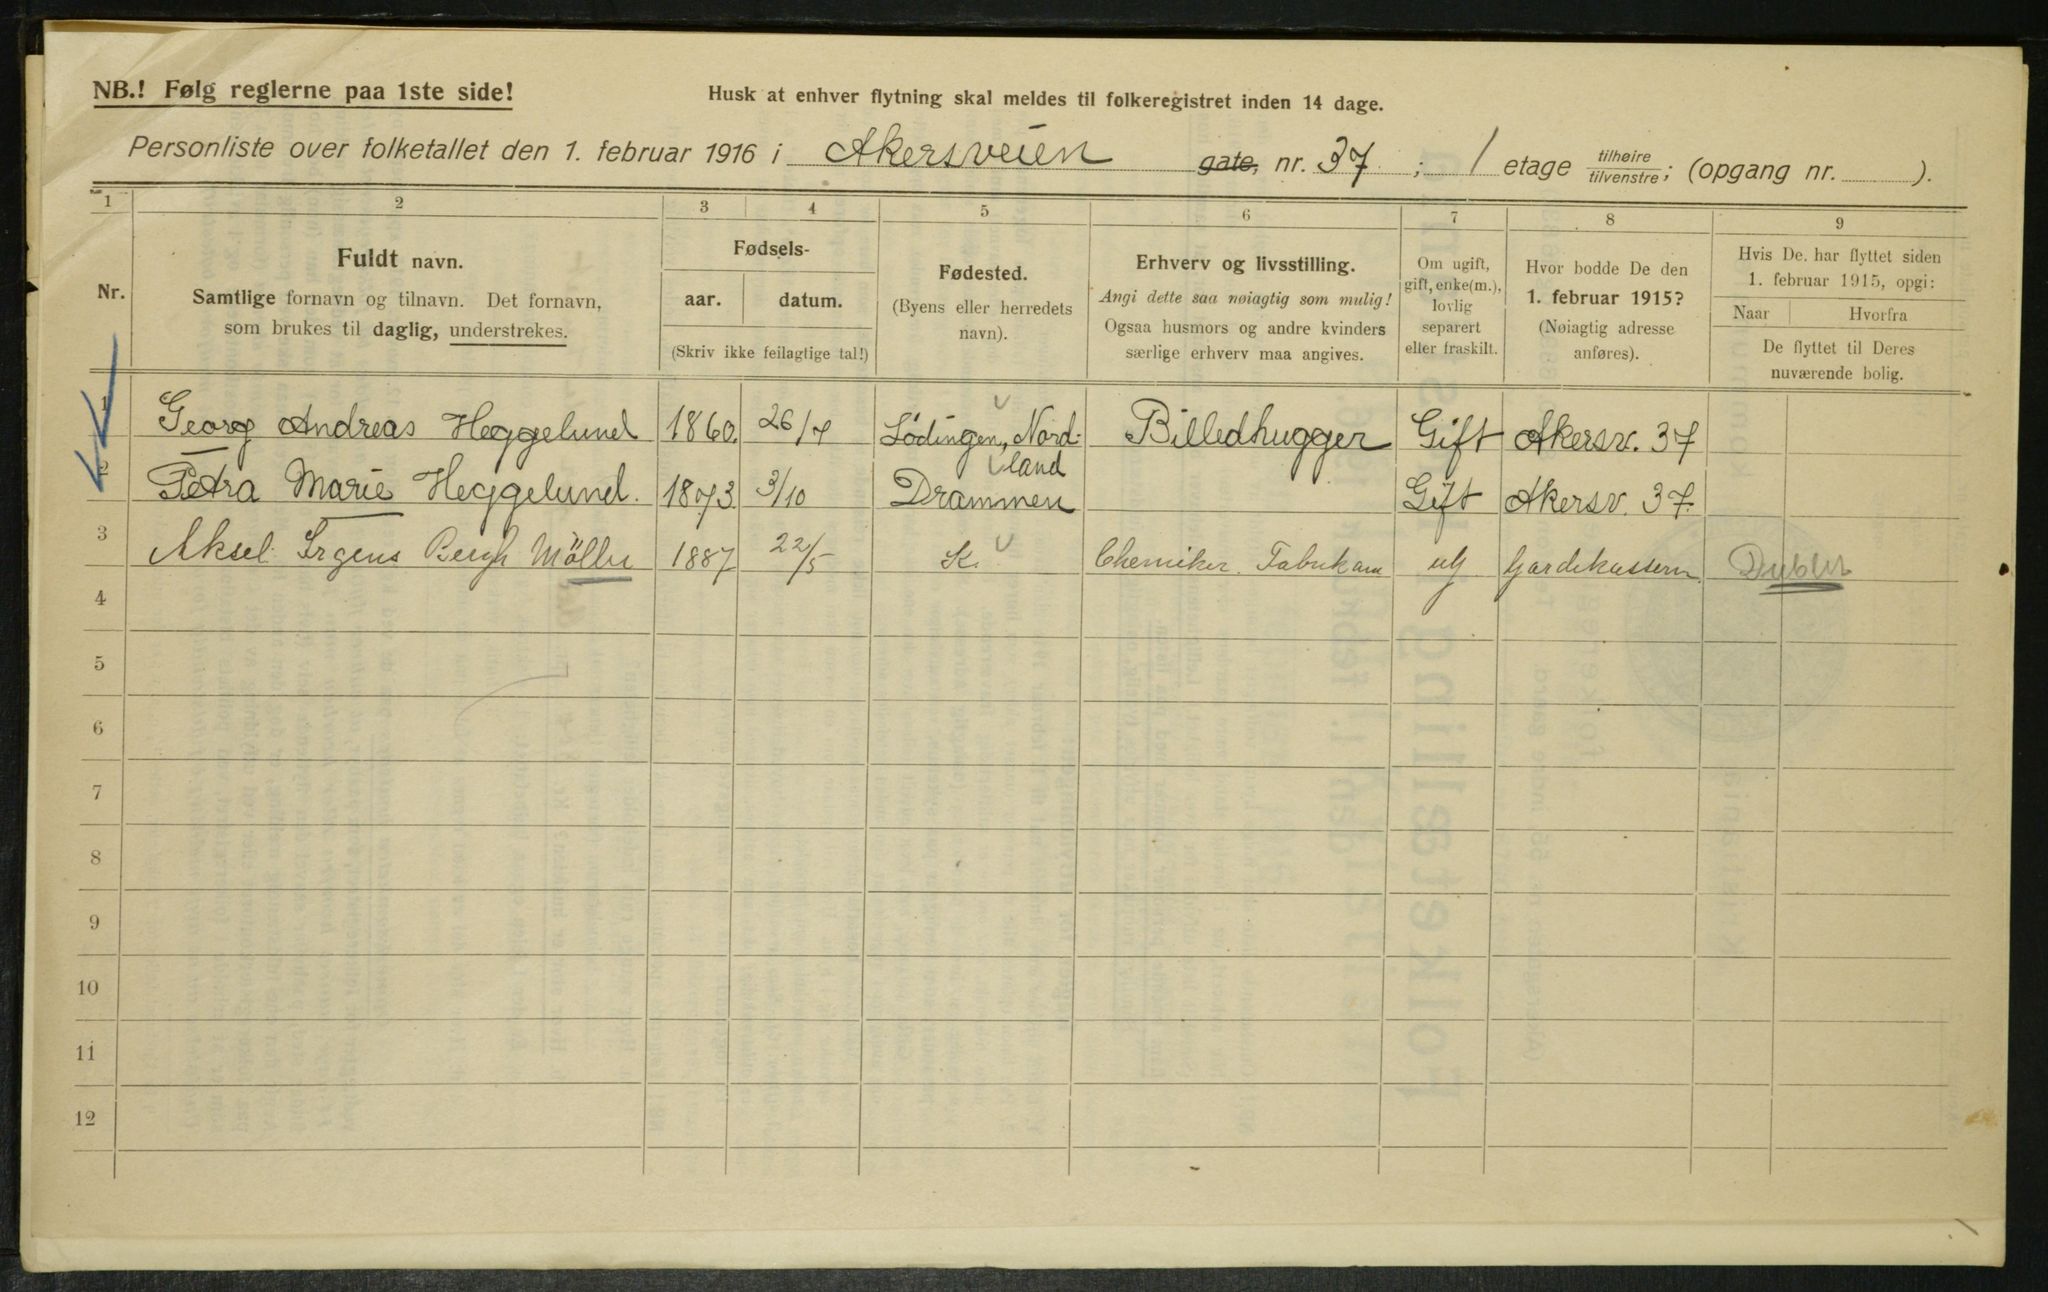 NB.! Følg reglerne paa 1ste side!
Husk at enhver flytning skal meldes til folkeregistret inden 14 dage.
Personliste over folketallet den 1. februar 1916 i Akersveien gate, nr. 37 ; 1 etage tilhøire tilvenstre; (opgang nr. ).
1 2 3 4 5 6 7 8 9
Nr.
Fuldt navn.
Samtlige fornavn og tilnavn. Det fornavn,
som brukes til daglig, understrekes.
Fødsels-
aar. datum.
(Skriv ikke feilagtige tal!)
Fødested.
(Byens eller herredets
navn).
Erhverv og livsstilling.
Angi dette saa nøiagtig som mulig!
Ogsaa husmors og andre kvinders
særlige erhverv maa angives.
Om ugift,
gift, enke(m.),
lovlig
separert
eller fraskilt.
Hvor bodde De den
1. februar 1915?
(Nøiagtig adresse
anføres).
Hvis De. har flyttet siden
1. februar 1915, opgi:
Naar Hvorfra
De flyttet til Deres
nuværende bolig.
1 Georg Andreas Heggelund 1860. 26/7 Lødingen, Nord- Billedhugger Gift Akersv. 37
land
2 Petra Marie Heggelund. 1873 3/10 Drammen Gift Akersv. 37.
3 Aksel Irgens Bergh Möller 1887 22/5 K. Chemiker. ug Gardekasern Dublet
4
5
6
7
8
9
10
11
12